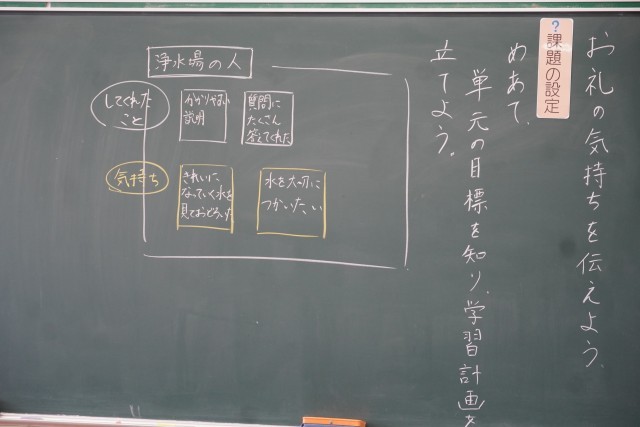 お礼の気持ちを伝えよう
?課題の設定
めあて、
単元の目標を知り、学習計画を
立てよう。
浄水場の人
してくれた
こと
わかりやすい
説明
質問に
たくさん
答えてくれた
気持ち
きれいに
なっていく水を
見ておどろいた
水を大切に
つかいたい